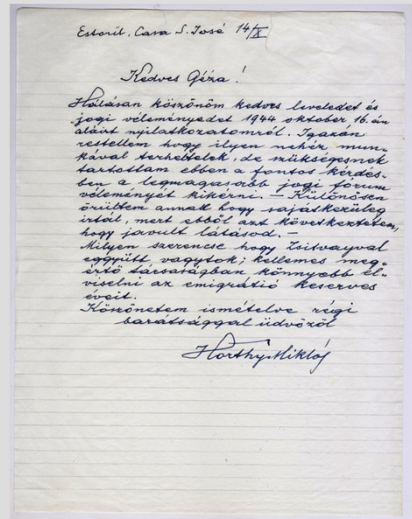 Estoril, Casa S. José 14/X
Kedves Géza!
Hálásan köszönöm kedves leveledet és
jogi véleményedet 1944 oktober 16.án
aláirt nyilatkozatomról. Igazán
restellem hogy ilyen nehéz mun-
kával terheltelek, de szükségesnek
tartottam ebben a fontos kérdés-
ben a legmagasobb jogi fórum
véleményét kikérni. – Különösen
örültem annak hogy sajátkezüleg
irtál, mert ebből azt következtetem,
hogy javult látásod. –
Milyen szerencse hogy Zsitvayval
eggyütt vagytok; kellemes meg-
értő társaságban könnyebb el-
viselni az emigrátió keserves
éveit.
Köszönetem ismételve régi
barátsággal üdvözöl
Horthy Miklós